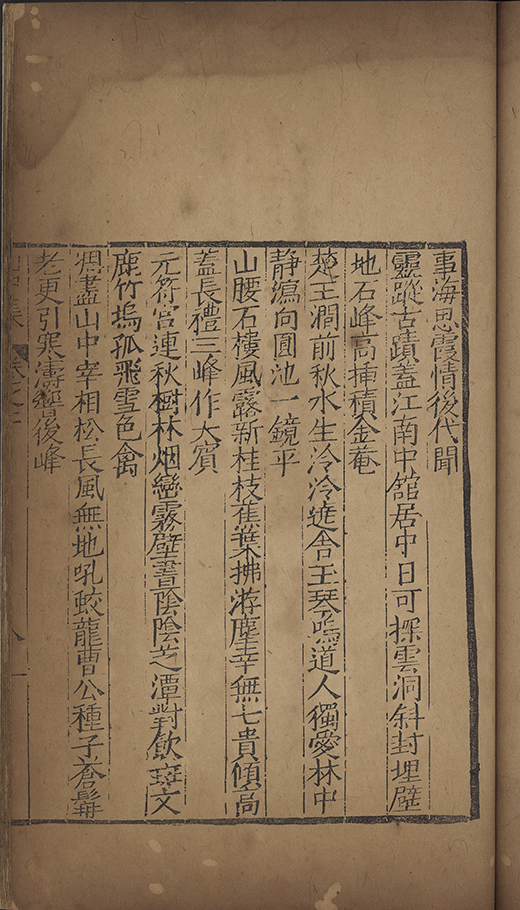 事海思霞情後代聞
靈蹤古蹟蓋江南中舘居中日可探雲洞斜封埋壁
地石峰高揷積金菴
楚王澗前秋水生泠泠遶舍玉琴鳴道人獨愛林中
静瀉向圓池一鏡平
山腰石樓風露新桂枝蕉葉拂游塵幸無七貴傾高
蓋長禮三峰作大賓
元符宮連秋樹林烟巒霧壁晝陰陰芝潭對飲斑文
鹿竹塢孤飛雪色禽
凋盡山中宰相松長風無地吼蛟龍曹公種子蒼髯
老更引寒濤響後峰